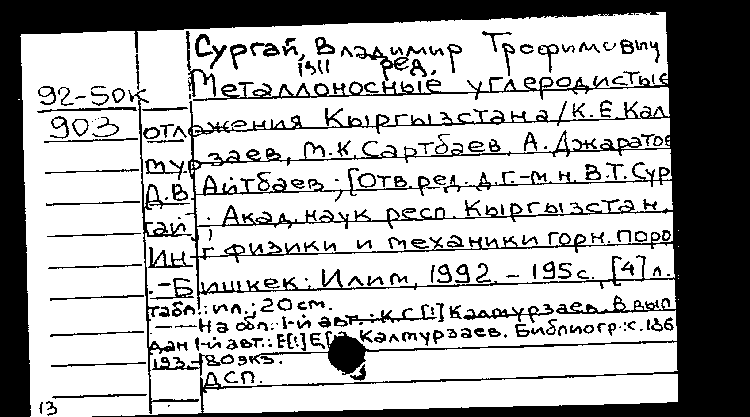 Сургай, Владимир Трофимович
1911 ред.
92-50к Металлоносные углеродистые
903 отложения Кыргызстана/К.Е.Кал
турзаев, М.К.Сартбаев, А.Джаратов
Д.В. Айтбаев; [Отв.ред. д.г.-м.н. В.Т.Сур
гай]; Акад. наук респ. Кыргызстан.
Ин-т физики и механики горн. поро
.-Бишкек: Илим, 1992. - 195с., [4]л.
табл.: ил.; 20см.
На обл.: 1-й авт.: К.С[!] Калтурзаев. В вып
дан 1-й авт.: Е[!]Е[ Калтурзаев. Библиогр.: с. 186
193.-180экз.
ДСП.
13